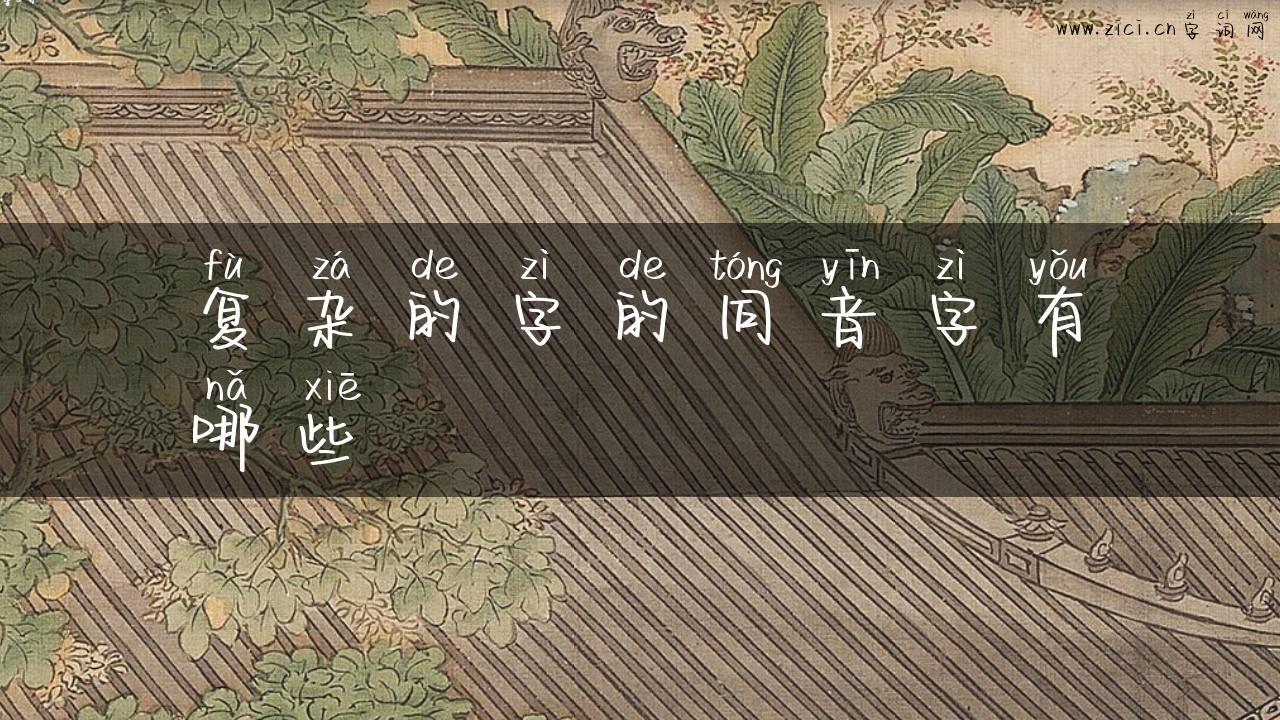 zì cí wǎng
www.zici.cn 字词网
fù zá de zì de tóng yīn zì yǒu
复杂的字的同音字有
nǎ xiē
哪些